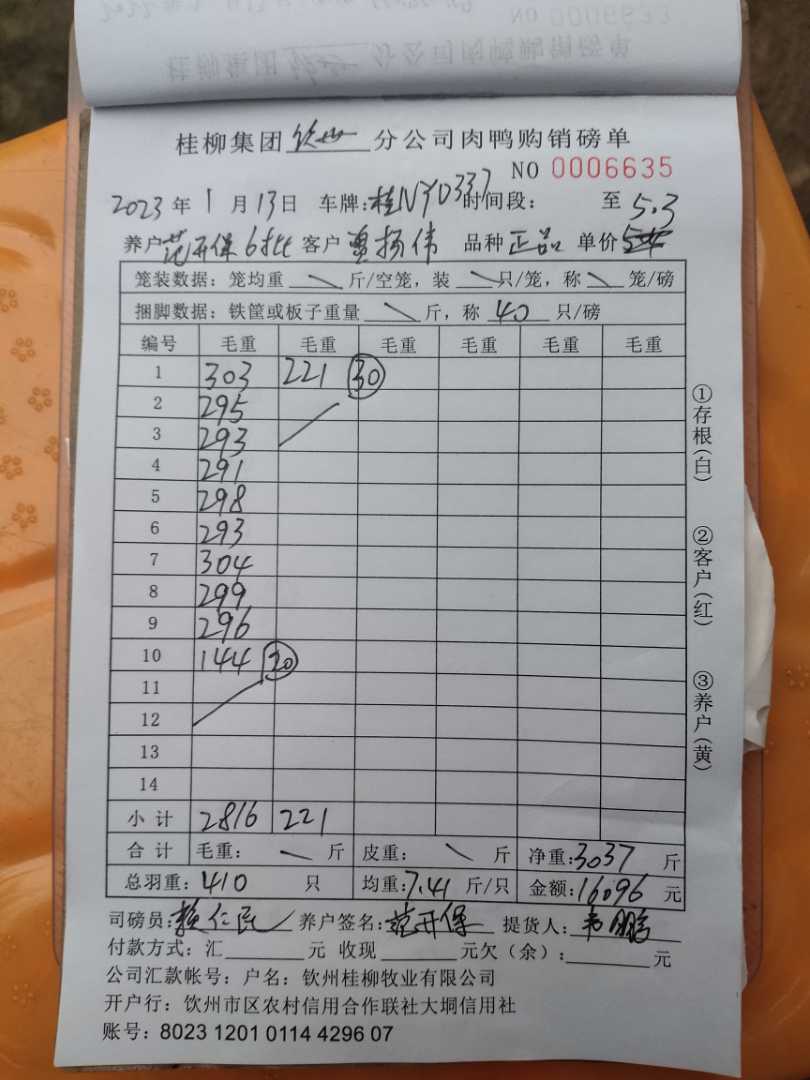 桂柳集团钦州分公司肉鸭购销磅单
NO 0006635
2023年1月13日 车牌:桂NYD337 时间段: 至
5.3
养户范开保6批 客户 扬伟 品种正品 单价
笼装数据: 笼均重 斤/空笼, 装 只/笼, 称 笼/磅
捆脚数据: 铁筐或板子重量 斤, 称 40 只/磅
编号 毛重 毛重 毛重 毛重 毛重 毛重
1 303 221 30
2 295
3 293
4 291
5 298
6 293
7 304
8 299
9 296
10 144 20
11
12
13
14
小计 2816 221
合计 毛重: 斤 皮重: 斤 净重:3037 斤
总羽重:410 只 均重:7.41 斤/只 金额:16096 元
司磅员:赖仁民 养户签名:范开保 提货人:韦鹏
付款方式: 汇 元 收现 元欠(余): 元
公司汇款帐号: 户名: 钦州桂柳牧业有限公司
开户行: 钦州市区农村信用合作联社大垌信用社
账号: 8023 1201 0114 4296 07
①存根(白)
②客户(红)
③养户(黄)